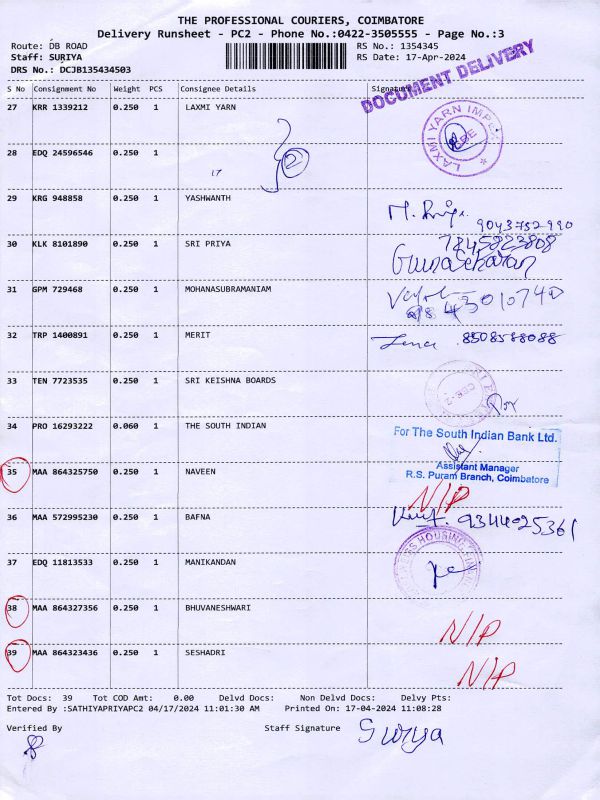 THE PROFESSIONAL COURIERS, COIMBATORE
Delivery Runsheet - PC2 - Phone No.:0422-3505555 - Page No.:3
Route: DB ROAD RS No.: 1354345
Staff: SURIYA RS Date: 17-Apr-2024
DRS No.: DCJB135434503
DOCUMENT DELIVERY
S No Consignment No Weight PCS Consignee Details Signature
27 KRR 1339212 0.250 1 LAXMI YARN
LAXMI YARN IMPEX
28 EDQ 24596546 0.250 1
17 2
29 KRG 948858 0.250 1 YASHWANTH
9043752990
30 KLK 8101890 0.250 1 SRI PRIYA
7845823808
Gunasekaran
31 GPM 729468 0.250 1 MOHANASUBRAMANIAM
9843010740
32 TRP 1400891 0.250 1 MERIT
8508588088
33 TEN 7723535 0.250 1 SRI KEISHNA BOARDS
CBE-2
34 PRO 16293222 0.060 1 THE SOUTH INDIAN
For The South Indian Bank Ltd.
Assistant Manager
R.S. Puram Branch, Coimbatore
35 MAA 864325750 0.250 1 NAVEEN
N/P
36 MAA 572995230 0.250 1 BAFNA
9344025361
37 EDQ 11813533 0.250 1 MANIKANDAN
HOUSING
38 MAA 864327356 0.250 1 BHUVANESHWARI
N/P
39 MAA 864323436 0.250 1 SESHADRI
N/P
Tot Docs: 39 Tot COD Amt: 0.00 Delvd Docs: Non Delvd Docs: Delvy Pts:
Entered By :SATHIYAPRIYAPC2 04/17/2024 11:01:30 AM Printed On: 17-04-2024 11:08:28
Verified By Staff Signature Surya